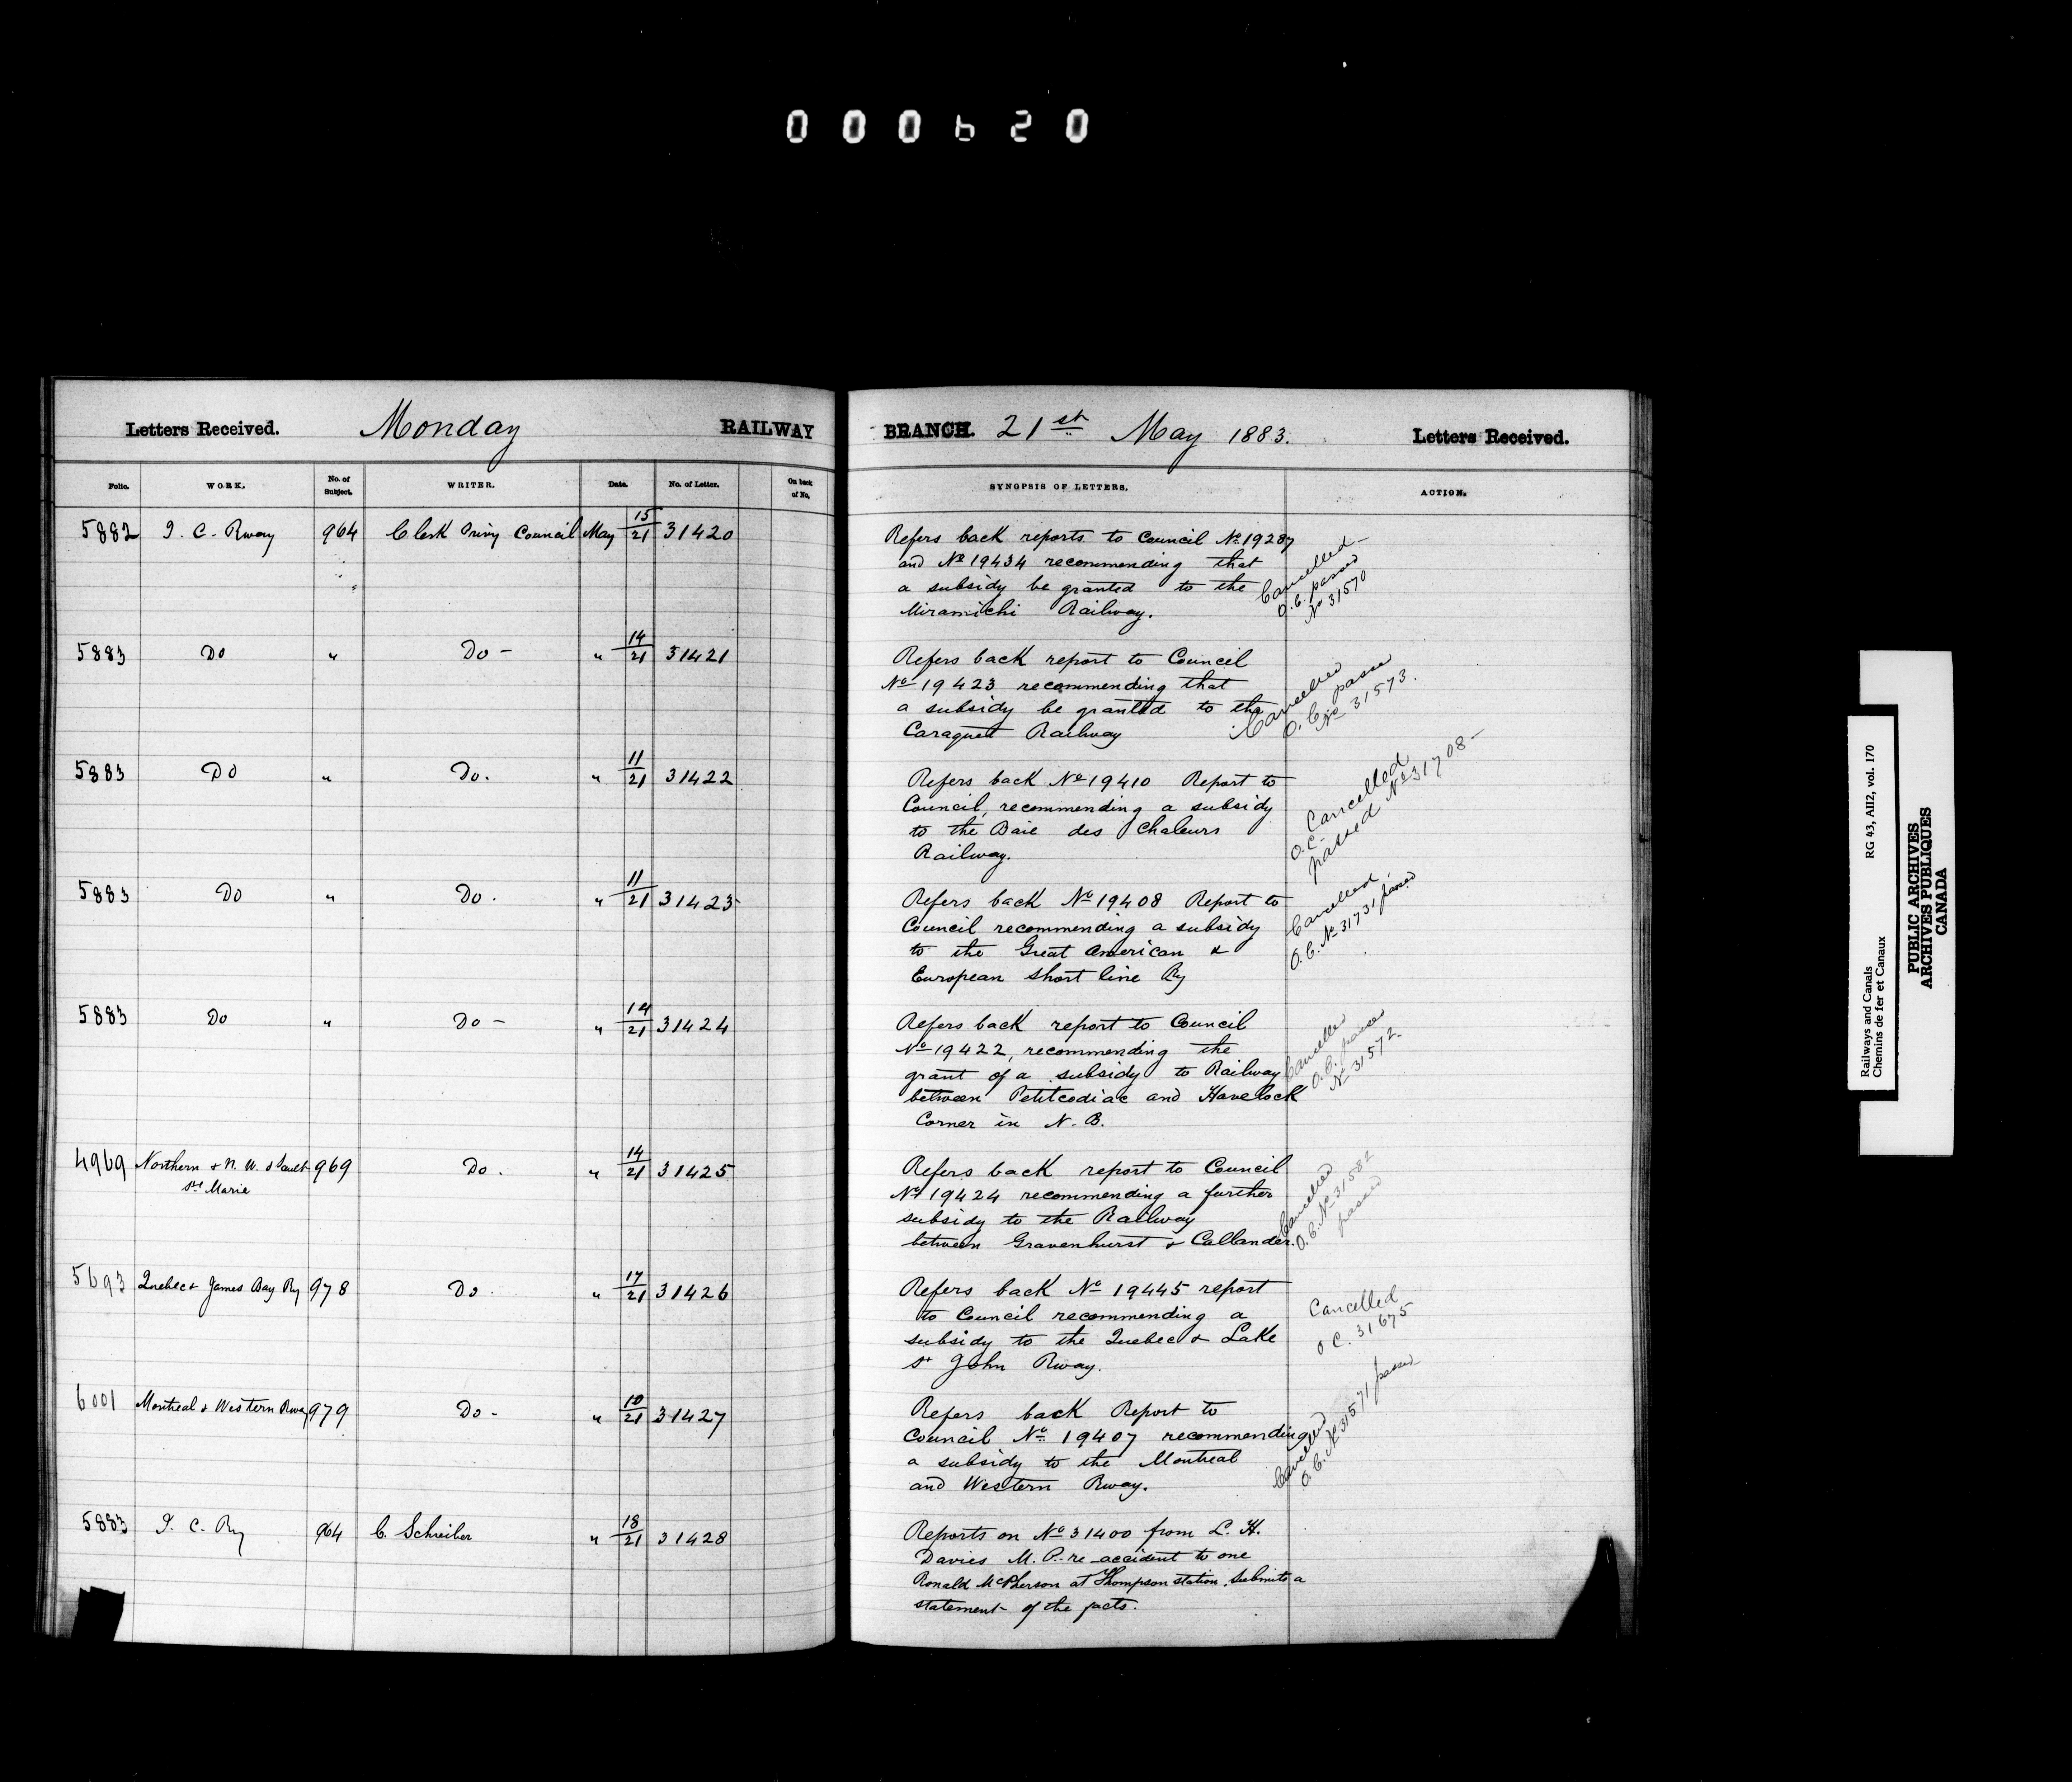 000620
Letters Received. Monday RAILWAY
BRANCH. 21st May 1883. Letters Received.
Folio. WORK. No. of Subject. WRITER. Date. No. of Letter. On back of No.
SYNOPSIS OF LETTERS. ACTION.
5882 I. C. Rway 964 Clerk Privy Council May 15/21 31420
Refers back reports to Council No 19287
and No 19434 recommending that
a subsidy be granted to the
Miramichi Railway.
Cancelled-
O.C. passed
No 31570
5883 Do " Do - " 14/21 31421
Refers back report to Council
No 19423 recommending that
a subsidy be granted to the
Caraquet Railway
Cancelled
O.C. passed
No 31573.
5883 Do " Do. " 11/21 31422
Refers back No 19410 Report to
Council, recommending a subsidy
to the Baie des Chaleurs
Railway.
Cancelled
O.C-
passed No 31708-
5883 Do " Do. " 11/21 31423
Refers back No 19408 Report to
Council recommending a subsidy
to the Great American &
European short line Ry
Cancelled
O.C. No 31731 passed
5883 Do " Do - " 14/21 31424
Refers back report to Council
No 19422, recommending the
grant of a subsidy to Railway
between Petitcodiac and Havelock
Corner in N. B.
Cancelled
O.C. passed
No 31572-
4969 Northern & N. W. & Sault 969 Do. " 14/21 31425
Ste Marie
Refers back report to Council
No 19424 recommending a further
subsidy to the Railway
between Gravenhurst & Callander.
Cancelled
O.C. No 31582
passed
5693 Quebec & James Bay Ry 978 Do. " 17/21 31426
Refers back No 19445 report
to Council recommending a
subsidy to the Quebec & Lake
St John Rway.
Cancelled
O C. 31675
6001 Montreal & Western Rway 979 Do - " 10/21 31427
Refers back Report to
Council No 19407 recommending
a subsidy to the Montreal
and Western Rway.
Cancelled
O.C. No 31571 passed
5883 I. C. Ry 964 C. Schreiber " 18/21 31428
Reports on No 31400 from L. H.
Davies M. P. re accident to one
Ronald McPherson at Thompson station. Submits a
statement of the facts.
Railways and Canals RG 43, AII2, vol. 170
Chemins de fer et Canaux
PUBLIC ARCHIVES
ARCHIVES PUBLIQUES
CANADA